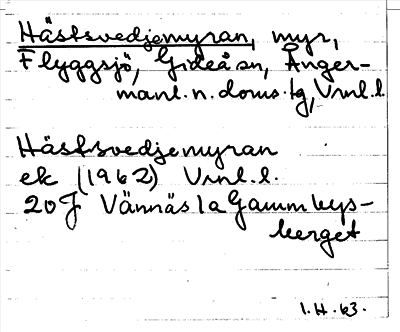 Hästsvedjemyran, myr,
Flyggsjö, Gideå sn, Ånger-
manl. n. doms.lg, Vnl.l.
Hästsvedjemyran
ek (1962) Vnl.l.
20J Vännäs 1a Gammbys-
berget
1.H.63.